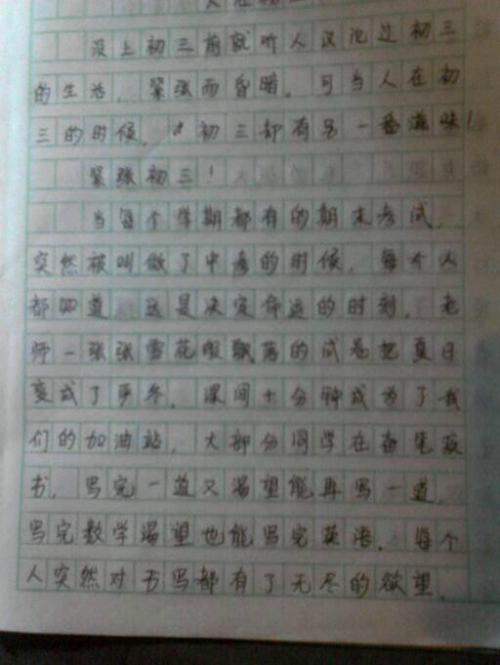 没上初三前就听人谈论过初三
的生活，紧张而昏暗。可当人在初
三的时候，初三都有另一番滋味！
紧张初三！
当每个学期都有的期末考试，
突然被叫做了中考的时候，每个人
都知道，这是决定命运的时刻。老
师一张张雪花般飘落的试卷把夏日
变成了严冬。课间十分钟成为了我
们的加油站，大部分同学在奋笔疾
书，写完一道又渴望能再写一道，
写完数学渴望也能写完英语。每个
人突然对书写都有了无尽的欲望。